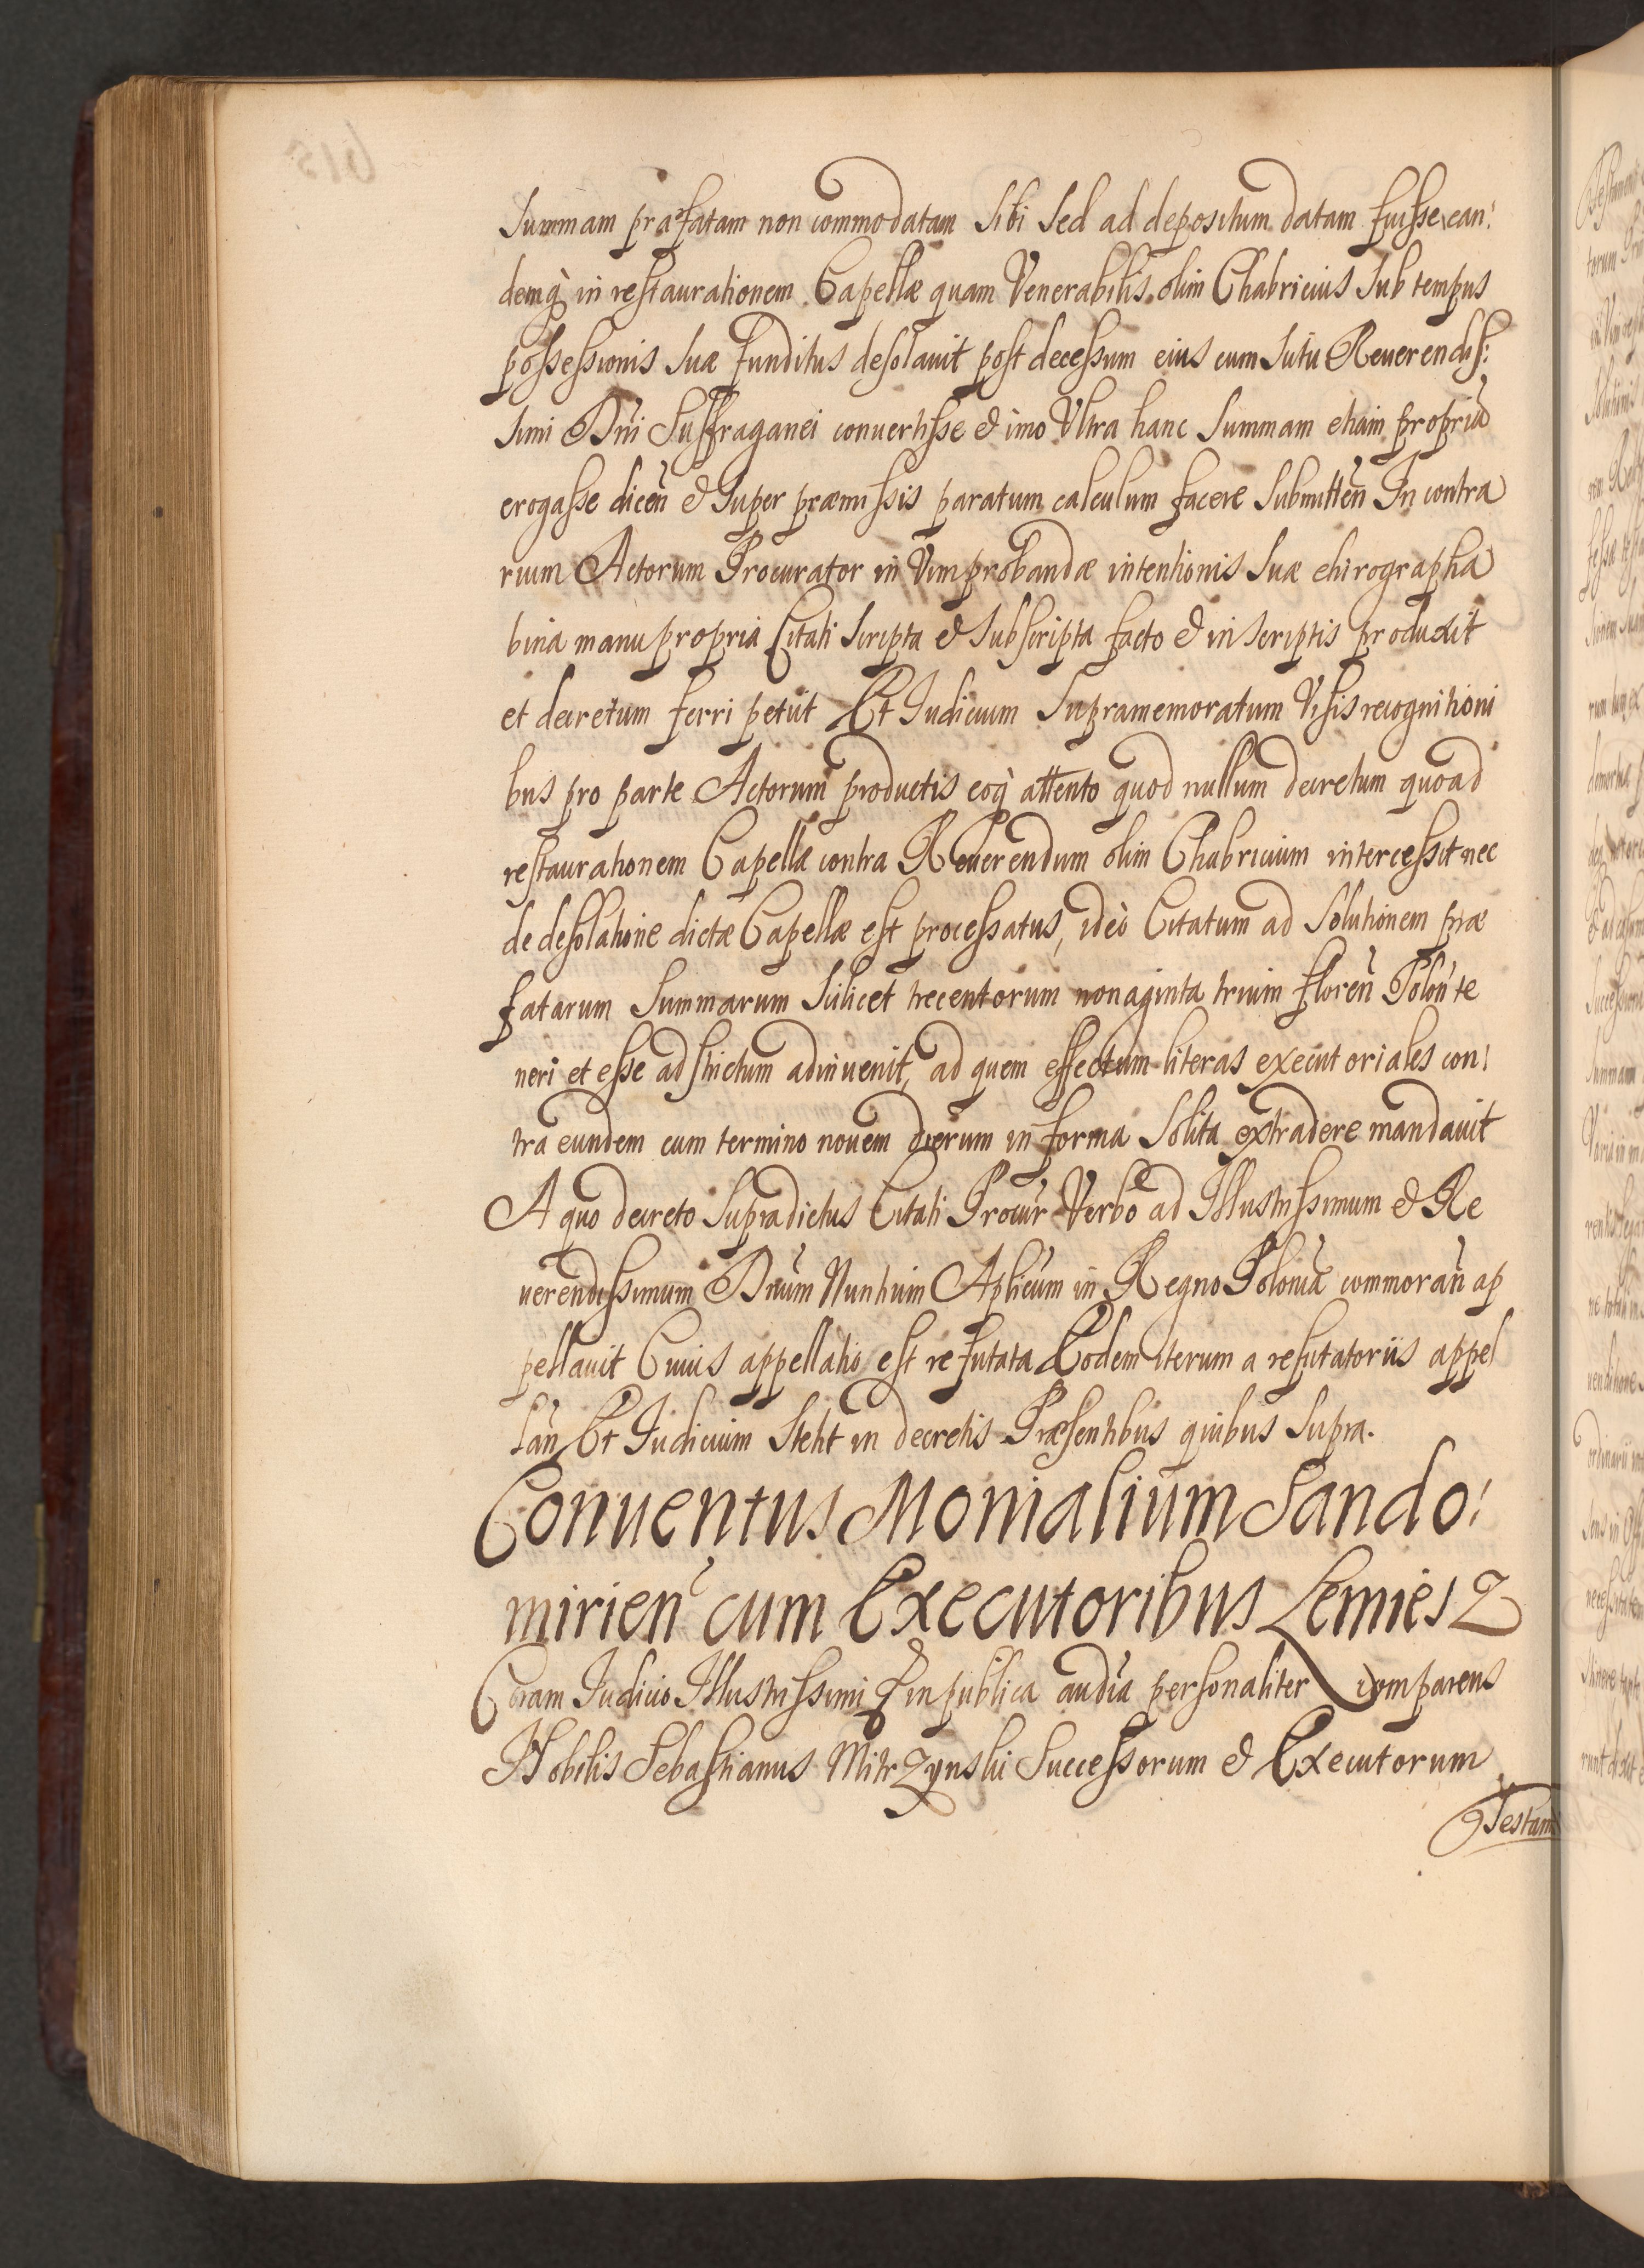 Summam præfatam non commodatam Sibi Sed ad depositum datam fuisse, ean:
demq̀ in restaurationem Capellæ quam Venerabilis olim Chabricius Sub tempus
possessionis Suæ funditus desolauit post decessum eius cum Scitu Reuerendis:
simi Dñi Suffraganei conuertisse & imo Vltra hanc Summam etiam propriã
erogasse diceñ & Super præmissis paratum calculum facere Submitteñ In contra
rium Actorum Procurator in Vim probandæ intentionis Suæ chirographa
bina manu propria Citati Scripta & Subscripta facto & in scriptis produxit
et decretum ferri petiit Et Iudicium Supramemoratum Visis recognitioni
bus pro parte Actorum productis eoq̀ attento quod nullum decretum quoad
restaurationem Capellæ contra Reuerendum olim Chabricium intercessit nec
de desolatione dictæ Capellæ est processatus, ideò Citatum ad Solutionem præ
fatarum Summarum Scilicet trecentorum nonaginta trium floreñ Poloñ te
neri et esse adstrictum adinuenit, ad quem effectum literas executoriales con:
tra eundem cum termino nouem dierum in forma Solita extradere mandauit
A quo decreto Supradictus Citati Procur̃ Verbo ad Illustrissimum & Re
uerendissimum Dñum Nuntium Aplicum in Regno Poloniæ commorañ ap
pellauit Cuius appellatio est refutata Eodem iterum a refutatoriis appel
lañ Et Iudicium Stetit in decretis Præsentibus quibus Supra.
Conuentus Monialium Sando:
mirieñ cum Executoribus Lemiesz
Coram Iudicio Illustrissimi & in publica audia personaliter comparens
Nobilis Sebastianus Mitrzynski Successorum & Executorum
Testam